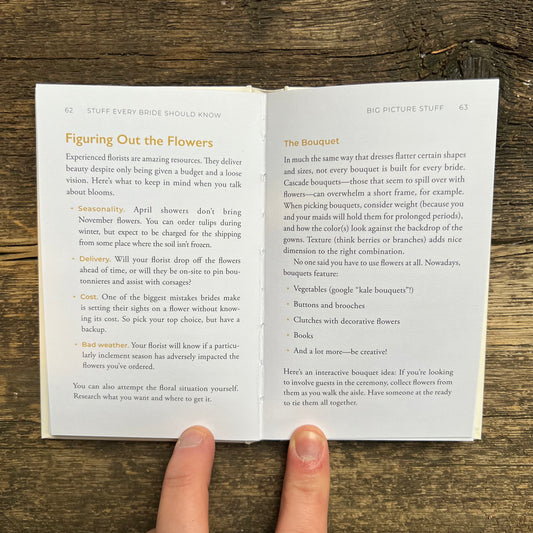 62 STUFF EVERY BRIDE SHOULD KNOW
Figuring Out the Flowers
Experienced florists are amazing resources. They deliver
beauty despite only being given a budget and a loose
vision. Here's what to keep in mind when you talk
about blooms.
• Seasonality. April showers don't bring
November flowers. You can order tulips during
winter, but expect to be charged for the shipping
from some place where the soil isn't frozen.
• Delivery. Will your florist drop off the flowers
ahead of time, or will they be on-site to pin bou-
tonnieres and assist with corsages?
• Cost. One of the biggest mistakes brides make
is setting their sights on a flower without know-
ing its cost. So pick your top choice, but have a
backup.
• Bad weather. Your florist will know if a particu-
larly inclement season has adversely impacted the
flowers you've ordered.
You can also attempt the floral situation yourself.
Research what you want and where to get it.
BIG PICTURE STUFF 63
The Bouquet
In much the same way that dresses flatter certain shapes
and sizes, not every bouquet is built for every bride.
Cascade bouquets—those that seem to spill over with
flowers—can overwhelm a short frame, for example.
When picking bouquets, consider weight (because you
and your maids will hold them for prolonged periods),
and how the color(s) look against the backdrop of the
gowns. Texture (think berries or branches) adds nice
dimension to the right combination.
No one said you have to use flowers at all. Nowadays,
bouquets feature:
• Vegetables (google "kale bouquets"!)
• Buttons and brooches
• Clutches with decorative flowers
• Books
• And a lot more—be creative!
Here's an interactive bouquet idea: If you're looking
to involve guests in the ceremony, collect flowers from
them as you walk the aisle. Have someone at the ready
to tie them all together.